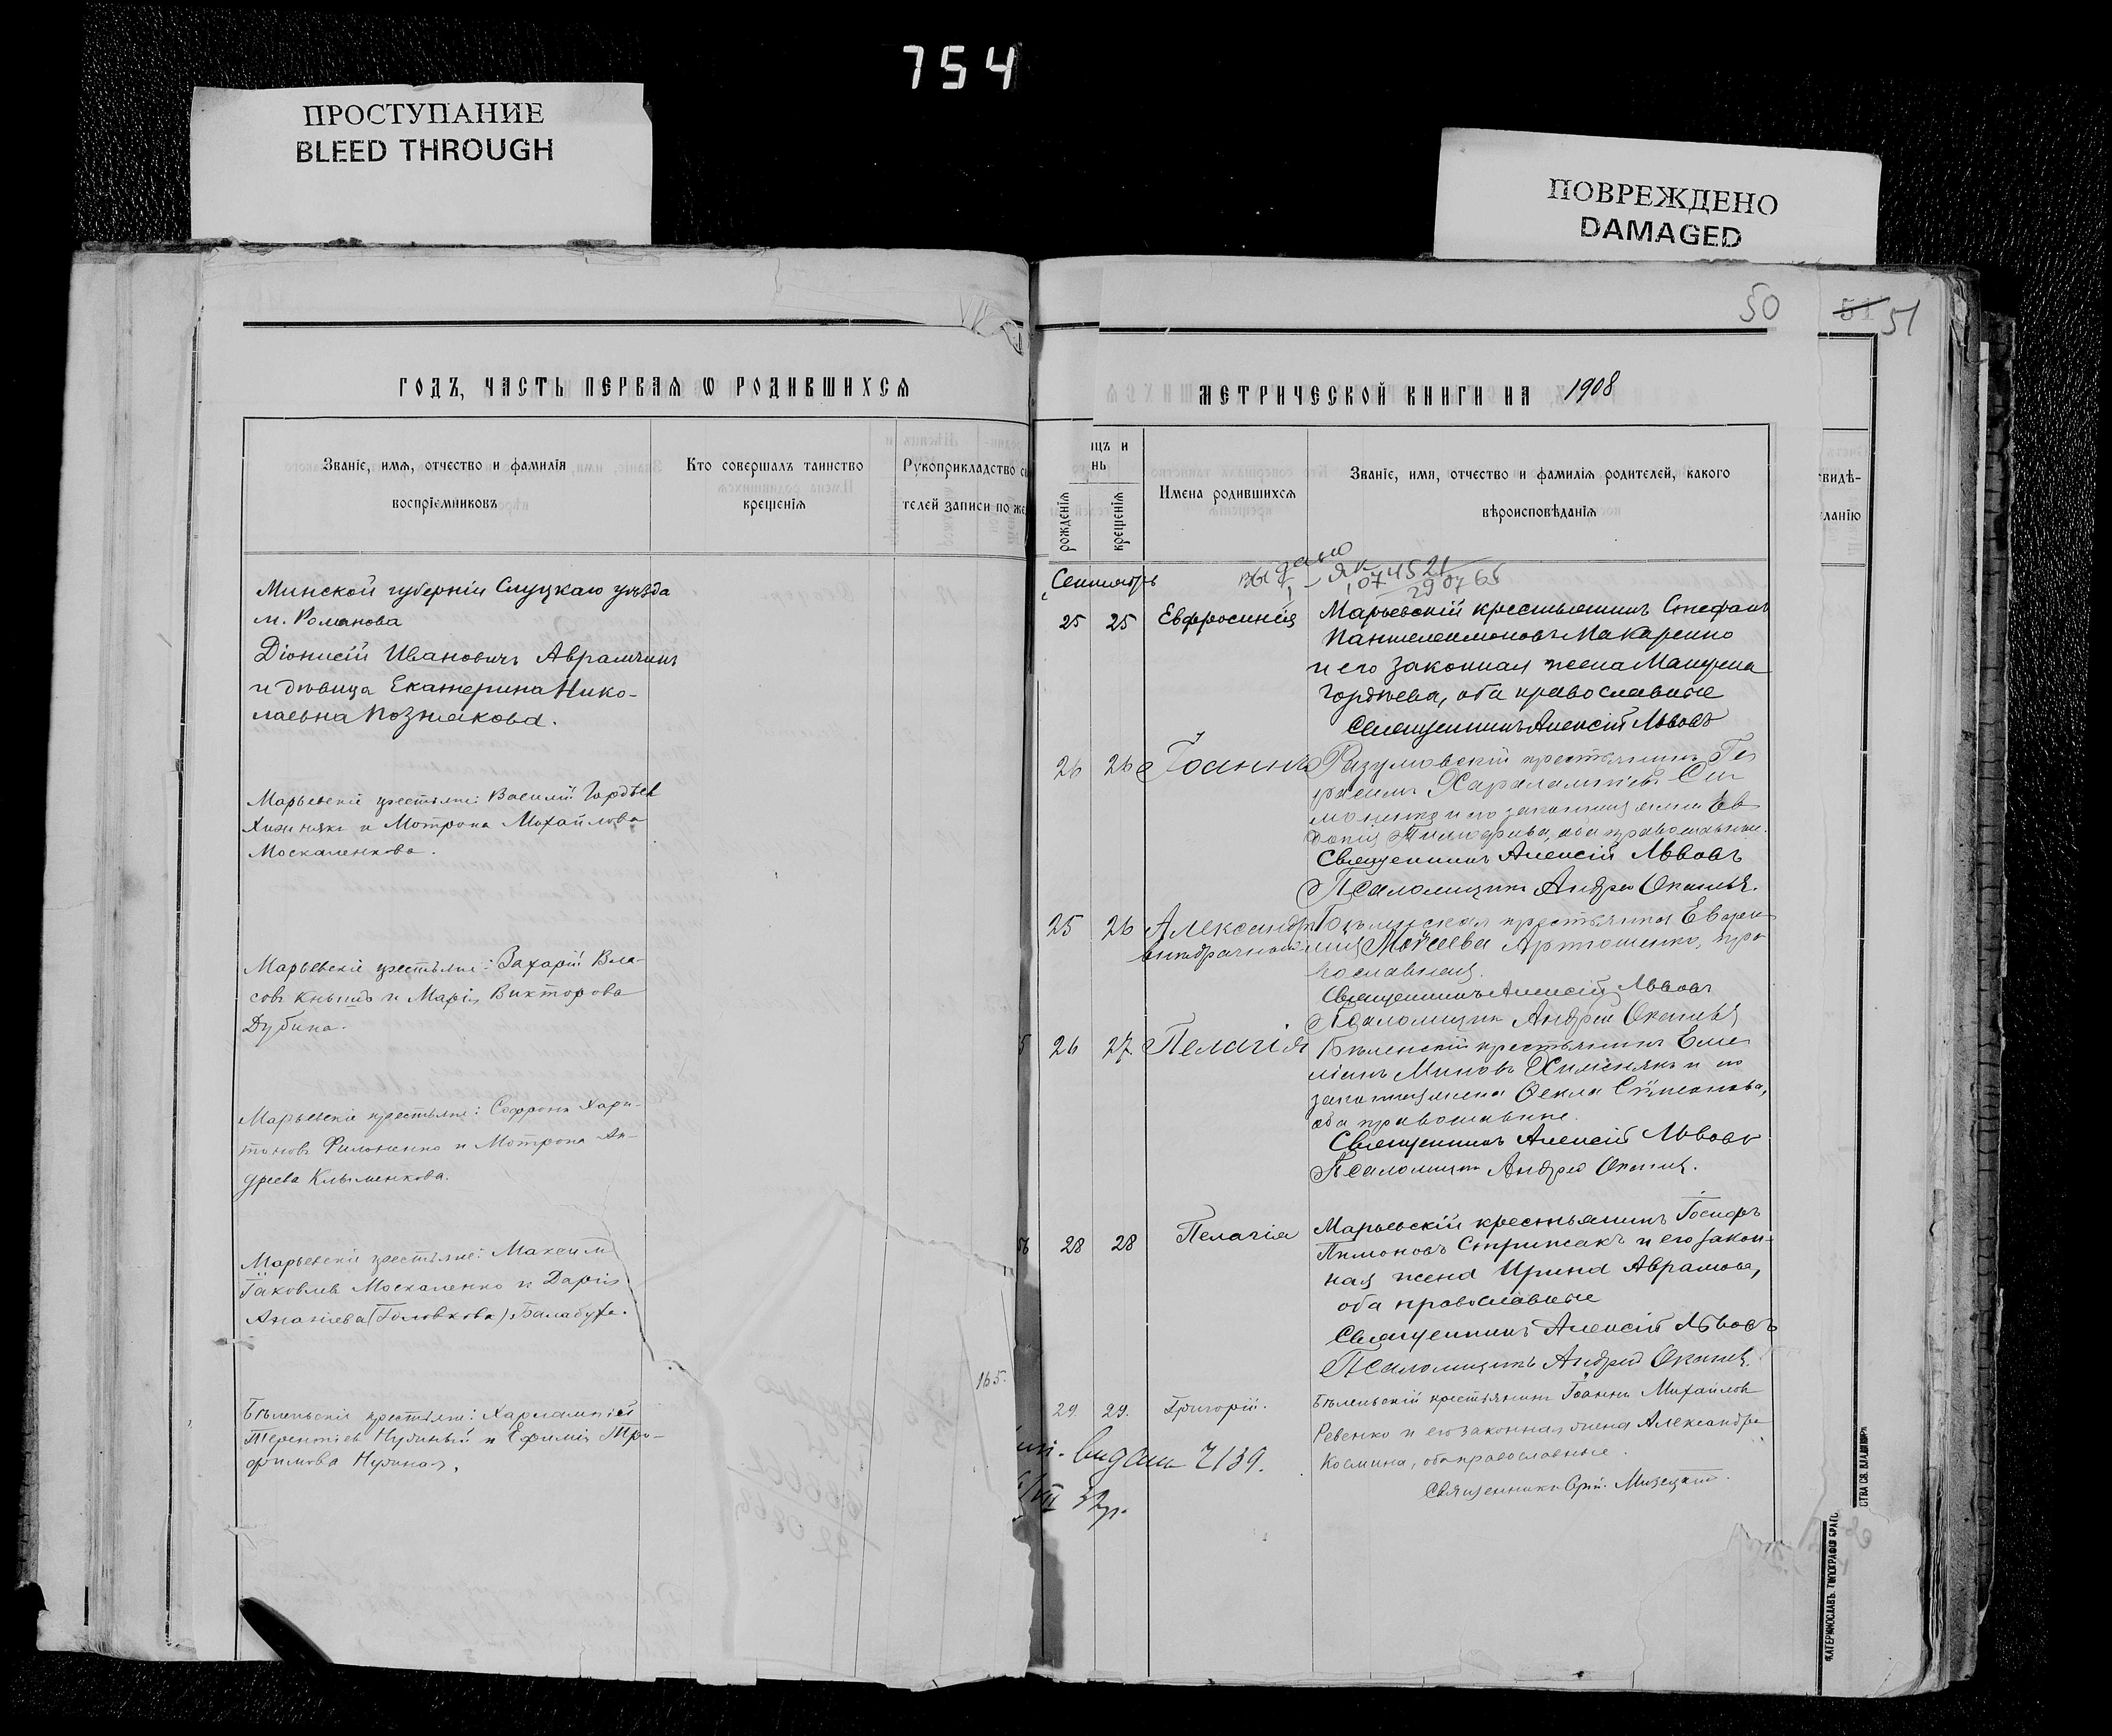 754
ПРОСТУПАНИЕ
BLEED THROUGH
ПОВРЕЖДЕНО
DAMAGED
ГОДЪ, ЧАСТЬ ПЕРВАЯ Ѡ РОДИВШИХСЯ
Званіе, имя, отчество и фамилія
воспріемниковъ
Кто совершалъ таинство
крещенія
Рукоприкладство
телей записи по
Минской губерніи Слуцкаго уѣзда
м. Романова
Діонисій Ивановичъ Аврамчикъ
и дѣвица Екатерина Нико-
лаевна Познякова.
Марьевскіе крестьяне: Василій Гордѣев
Хижнякъ и Мотрона Михайлова
Москаленкова.
Марьевскіе крестьяне: Захарій Вла-
совъ Кнышъ и Марія Викторова
Дубина.
Марьевскіе крестьяне: Софронъ Хари-
тоновъ Филоненко и Мотрона Ан-
дреева Клименкова.
Марьевскіе крестьяне: Максим
Іаковлев Москаленко и Дарія
Ананіева (Головкова) Балабуха.
Бѣленьскіе крестьяне: Харлампій
Терентіев Нудный и Ефимія Тро-
фимова Нудная.
165.
50
51 51
МЕТРИЧЕСКОЙ КНИГИ НА 1908
щъ и
нь
рожденія
крещенія
Имена родившихся
Званіе, имя, отчество и фамилія родителей, какого
вѣроисповѣданія
свидѣ-
ланію
Сентябрь
видано
25 25 Евфросинія Марьевскій крестьянинъ Стефанъ
Пантелеимоновъ Макаренко
и его законная жена
Гордѣева, оба православные
Священникъ Алексій Львовъ
26 26 Іоаннъ Разумовскій крестьянинъ Ге
расимъ Харалампіевъ
и его законная жена Ев
докія Тимофеева, оба православные.
Священникъ Алексій Львовъ
Псаломщикъ Андрей
25 26 Александръ
внебрачный
Бѣленская крестьянка
Моисеева Артюшенко, пра
вославная.
Священникъ Алексій Львовъ
Псаломщикъ Андрей
26 27 Пелагія Бѣленскій крестьянинъ Еме
ліанъ Миновъ и его
законная жена Ѳекла Симеонова,
оба православные.
Священникъ Алексій Львовъ
Псаломщикъ Андрей
28 28 Пелагіа Марьевскій крестьянинъ Іосифъ
Пимоновъ Стрижакъ и его закон-
ная жена Ирина Аврамова,
оба православные
Священникъ Алексій Львовъ
Псаломщикъ Андрей
29. 29. Григорій. Бѣленьскій крестьянинъ Іоаннъ Михайлов
Ревенко и его законная жена Александра
Космина, оба православные.
Священникъ
СТВА СВ. ВЛАДИМІРА
КАТЕРИНОСЛАВЪ. ТИПОГРАФІЯ БРАТС